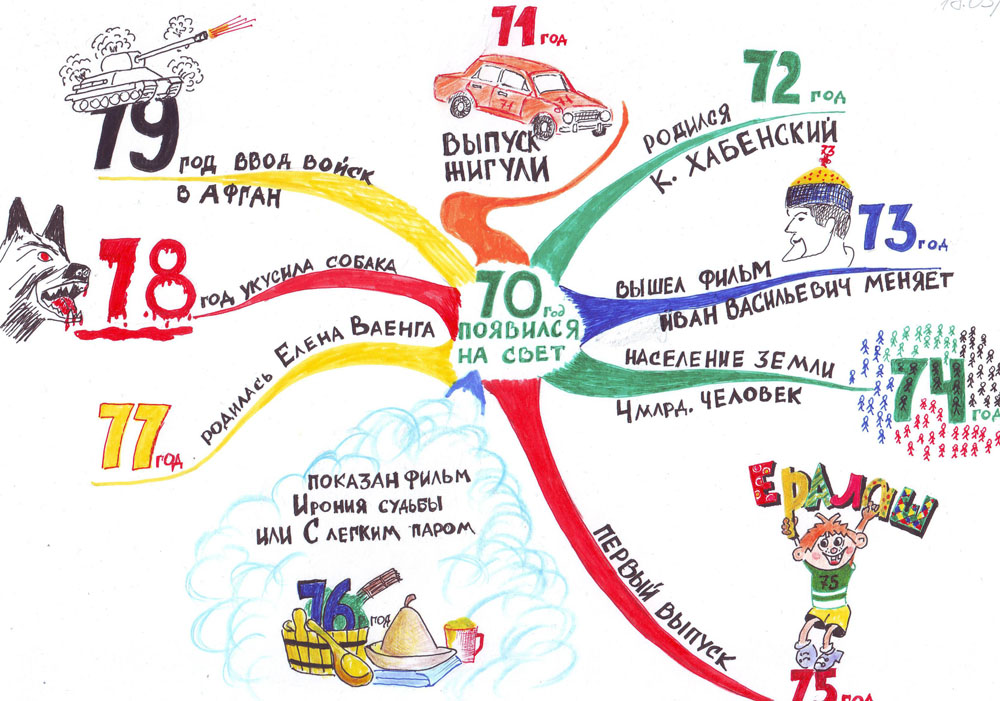 70 год
ПОЯВИЛСЯ
НА СВЕТ
71 год
71
71
ВЫПУСК
ЖИГУЛИ
72 год
РОДИЛСЯ
К. ХАБЕНСКИЙ
73
73 год
ВЫШЕЛ ФИЛЬМ
ИВАН ВАСИЛЬЕВИЧ МЕНЯЕТ
74 год
НАСЕЛЕНИЕ ЗЕМЛИ
4 МЛРД. ЧЕЛОВЕК
ЕРАЛАШ
75
75 год
ПЕРВЫЙ ВЫПУСК
ПОКАЗАН ФИЛЬМ
ИРОНИЯ СУДЬБЫ
ИЛИ С ЛЕГКИМ ПАРОМ
76 год
77 год
РОДИЛАСЬ ЕЛЕНА ВАЕНГА
78
ГОД УКУСИЛА СОБАКА
79
ГОД ВВОД ВОЙСК
В АФГАН